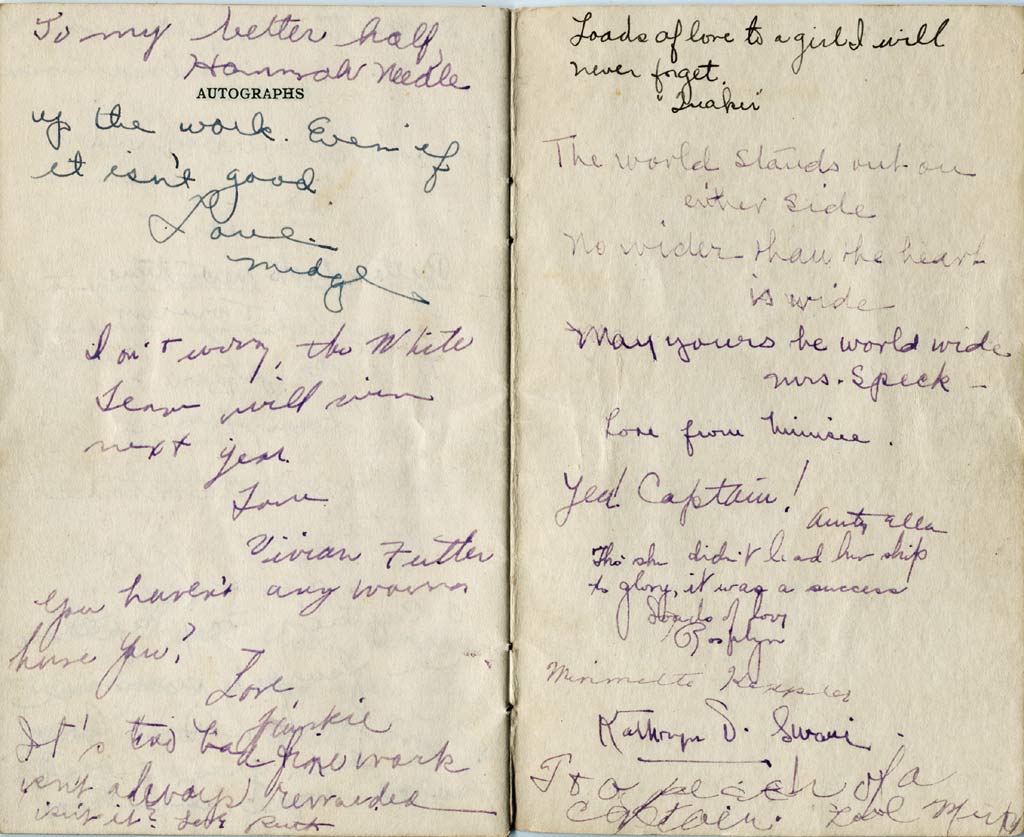 To my better half,
Hannah Needle
AUTOGRAPHS
up the work. Even if
it isn't good
Love
Midge
Don't worry, the White
Team will win
next year.
Love
Vivian Futter
You haven't any worms
have you?
Love
It's too bad fine work
isn't always rewarded
isn't it? Love Ruth
Loads of love to a girl I will
never forget.
"Quaker"
The world stands out on
either side
No wider than the heart
is wide
May yours be world wide
Mrs. Speck -
Love from Minisee.
Yea! Captain!
Aunty Ella
Tho' she didn't lead her ship
to glory, it was a success
Loads of love
Rosalyn
Minnette
Kathryn D. Swain.
To a peach of a
captain. Love